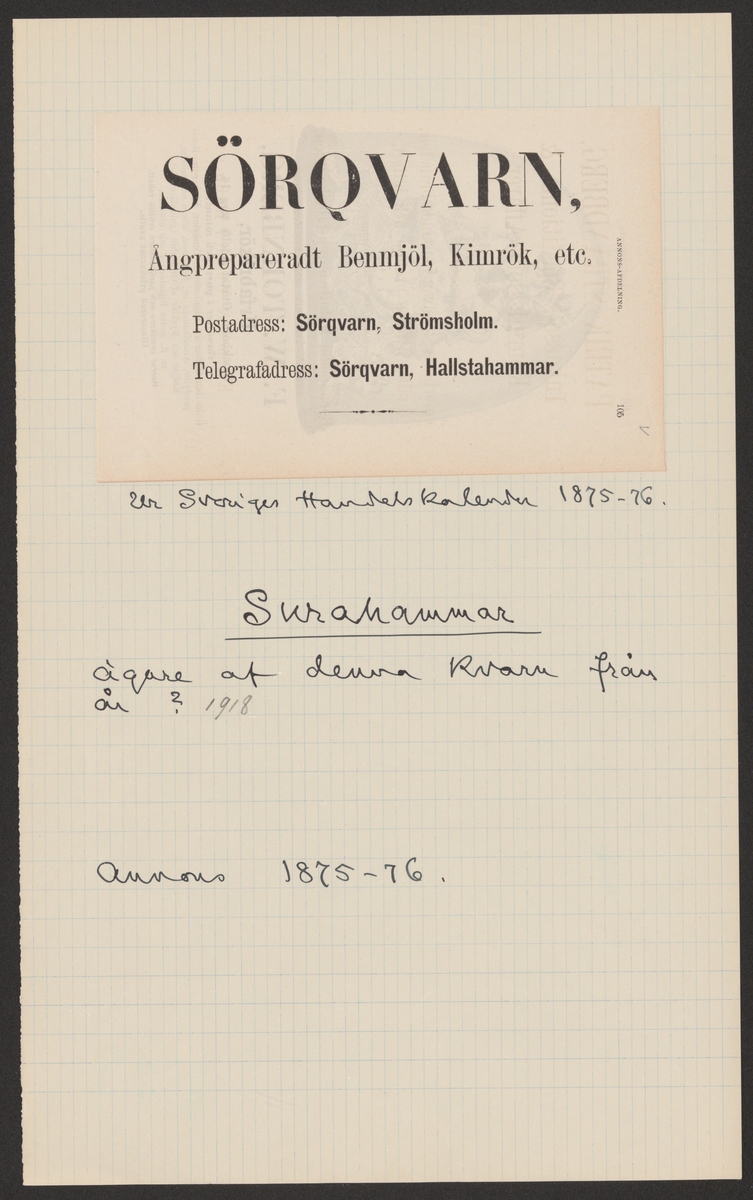 SÖRQVARN,
Ångprepareradt Benmjöl, Kimrök, etc.
Postadress: Sörqvarn, Strömsholm.
Telegrafadress: Sörqvarn, Hallstahammar.
ANNONS-AFDELNING.
105
Ur Sveriges Handelskalender 1875-76.
Surahammar
ägare af denna kvarn från
år ? 1918
Annons 1875-76.